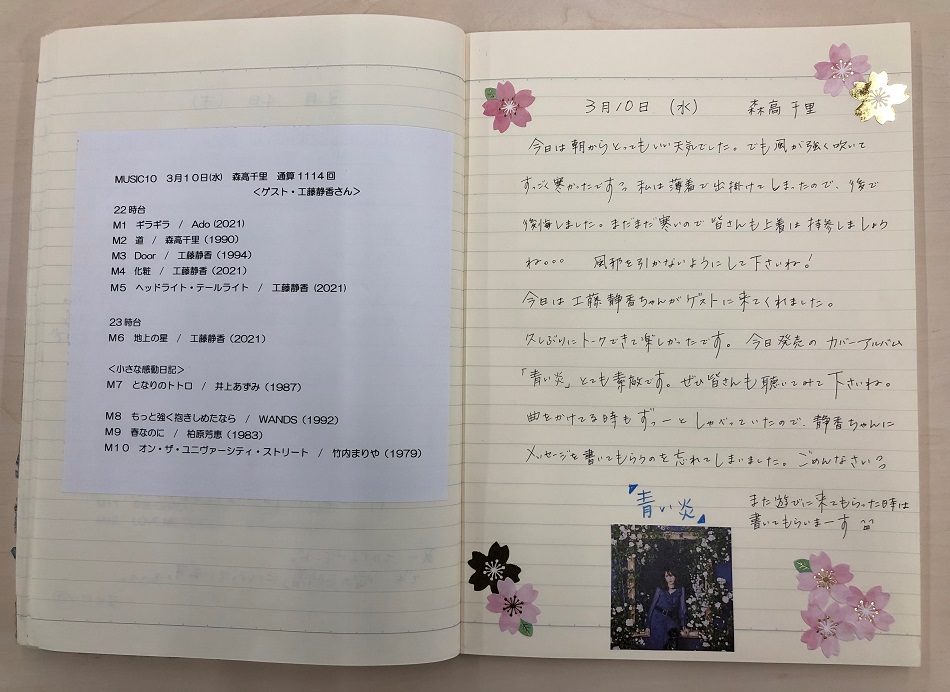 MUSIC10 3月10日(水) 森高千里 通算1114回
<ゲスト・工藤静香さん>
22時台
M1 ギラギラ / Ado (2021)
M2 道 / 森高千里 (1990)
M3 Door / 工藤静香 (1994)
M4 化粧 / 工藤静香 (2021)
M5 ヘッドライト・テールライト / 工藤静香 (2021)
23時台
M6 地上の星 / 工藤静香 (2021)
<小さな感動日記>
M7 となりのトトロ / 井上あずみ (1987)
M8 もっと強く抱きしめたなら / WANDS (1992)
M9 春なのに / 柏原芳恵 (1983)
M10 オン・ザ・ユニヴァーシティ・ストリート / 竹内まりや (1979)
3月10日 (水) 森高千里
今日は朝からとってもいい天気でした。でも風が強く吹いて
すっごく寒かったです。私は薄着で出掛けてしまったので、後で
後悔しました。まだまだ寒いので皆さんも上着は持参しましょう
ね。。。 風邪を引かないようにして下さいね!
今日は工藤静香ちゃんがゲストに来てくれました。
久しぶりにトークできて楽しかったです。今日発売のカバーアルバム
「青い炎」とても素敵です。ぜひ皆さんも聴いてみて下さいね。
曲をかけてる時もずっーとしゃべっていたので、静香ちゃんに
メッセージを書いてもらうのを忘れてしまいました。ごめんなさい
「青い炎」
また遊びに来てもらった時は
書いてもらいまーす